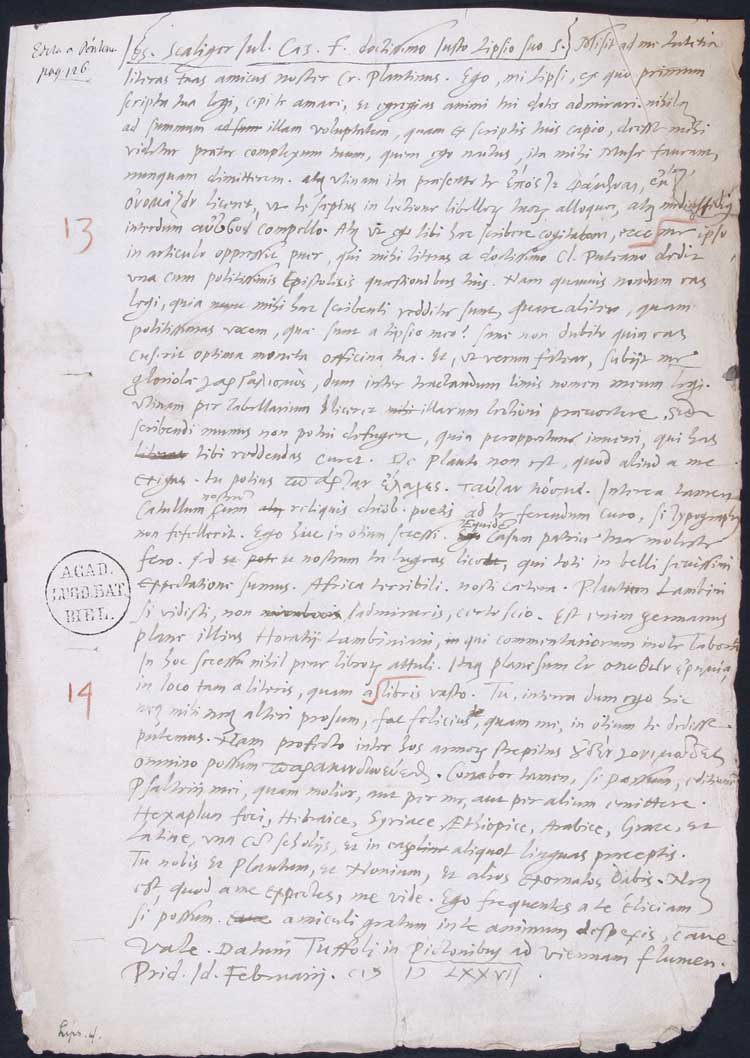 Edita a Pontano
pag. 126.
Jos. Scaliger Jul. Cæs. F. doctissimo Justo Lipsio suo S. Misit ad me Lutetia
literas tuas amicus noster Cr. Plantinus. Ego, mi Lipsi, ex quo primum
scripta tua legi, cepi te amare, et egregias animi tui dotes admirari. nihilq
ad summam illam voluptatem, quam ex scriptis tuis capio, deesse mihi
videtur præter complexum tuum, quem ego nactus, ita mihi Musæ faveant,
nunquam dimitterem. utinam ita præsente te
liceret, ut te sæpius in lectione libellorū tuorū alloquor,
interdum compello. Atq ut ego tibi hæc scribere cogitabam, ecce me ipso
13
in articulo oppressit puer, qui mihi literas a doctissimo Cl. Puteano dedit
una cum politissimis Epistolicis quæstionibus tuis. Nam quamvis nondum eas
legi, quia mihi hæc scribenti redditæ sunt, quare aliter, quam
politissimas vocem, quæ sunt a Lipsio meo? sane non dubito quin eas
cuserit optima moneta officina tua. Et, ut verum fatear, subijt me
gloriolæ γαργαλισμὸς, dum inter tractandum limis nomen meum legi.
utinam per tabellarium liceret illarum lectioni prævertere. Sed
scribendi munus non potui defugere, quia peropportune inveni, qui has
tibi reddendas curet. De Plauto non est, quod aliud a me
exigas. tu potius Interea tamen
Catullum nostrum cum reliquis poetis ad te ferendum curo, si typographus
non fefellerit. Ego huc in otium secessi. Equidem Casum patriæ hunc moleste
fero. nostrum lugeas qui toti in belli sævissimi
expectatione sumus. Africa terribili. nosti cætera. Plautum Lambini
si vidisti, non admiraris, certo scio. Est enim germanus
plane illius Horatij Lambiniani, in qui commentariorum mole laborat.
In hoc secessu nihil pene librorū attuli. Itaq plane sum
14
in loco tam a literis, quam a libris vasto. Tu, interea dum ego hic
neq mihi neq alteri prosum, fac felicius, quam me, in otium te dedisse
putemus. Nam profecto inter hos armorū strepitus
omnino possum Conabor tamen, si possum, editionem
Psalterij mei, quam molior, aut per me, aut per alium emittere.
Hexaplun feci, Hebraice, Syriace, Æthiopice, Arabice, Græce, et
Latine, una cū scholijs, et in aliquot linguas præceptis.
Tu nobis et Plautum, et Nonium, et alios exornatos dabis. Neq
est, quod a me expectes, me vide. Ego frequentes a te eliciam
si possum. amiculi gratum in te animum despexis, cave
Vale. Datum Tuffoli in Pictonibus ad Viennam flumen.
Prid. Id. Februarij. CIↃ IↃ LXXVII.
ACAD.
LUGD. BAT.
BIBL.
Lips. 4.